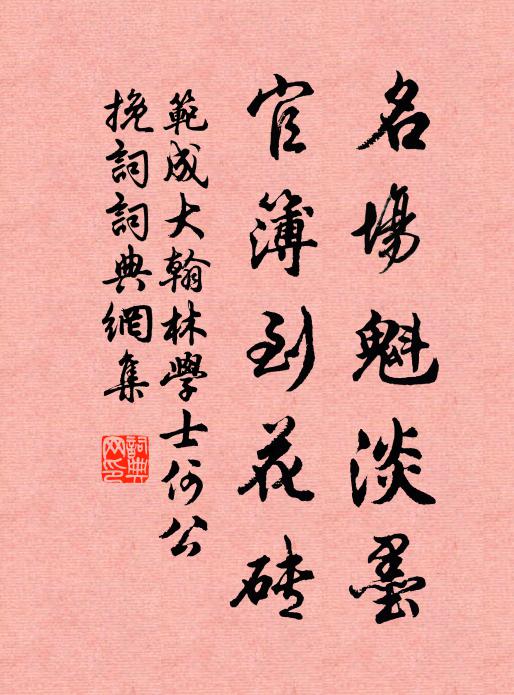 名場魁淡墨
官簿到花砖
範成大翰林學士何公
挽詞詞典網集
詞典网印